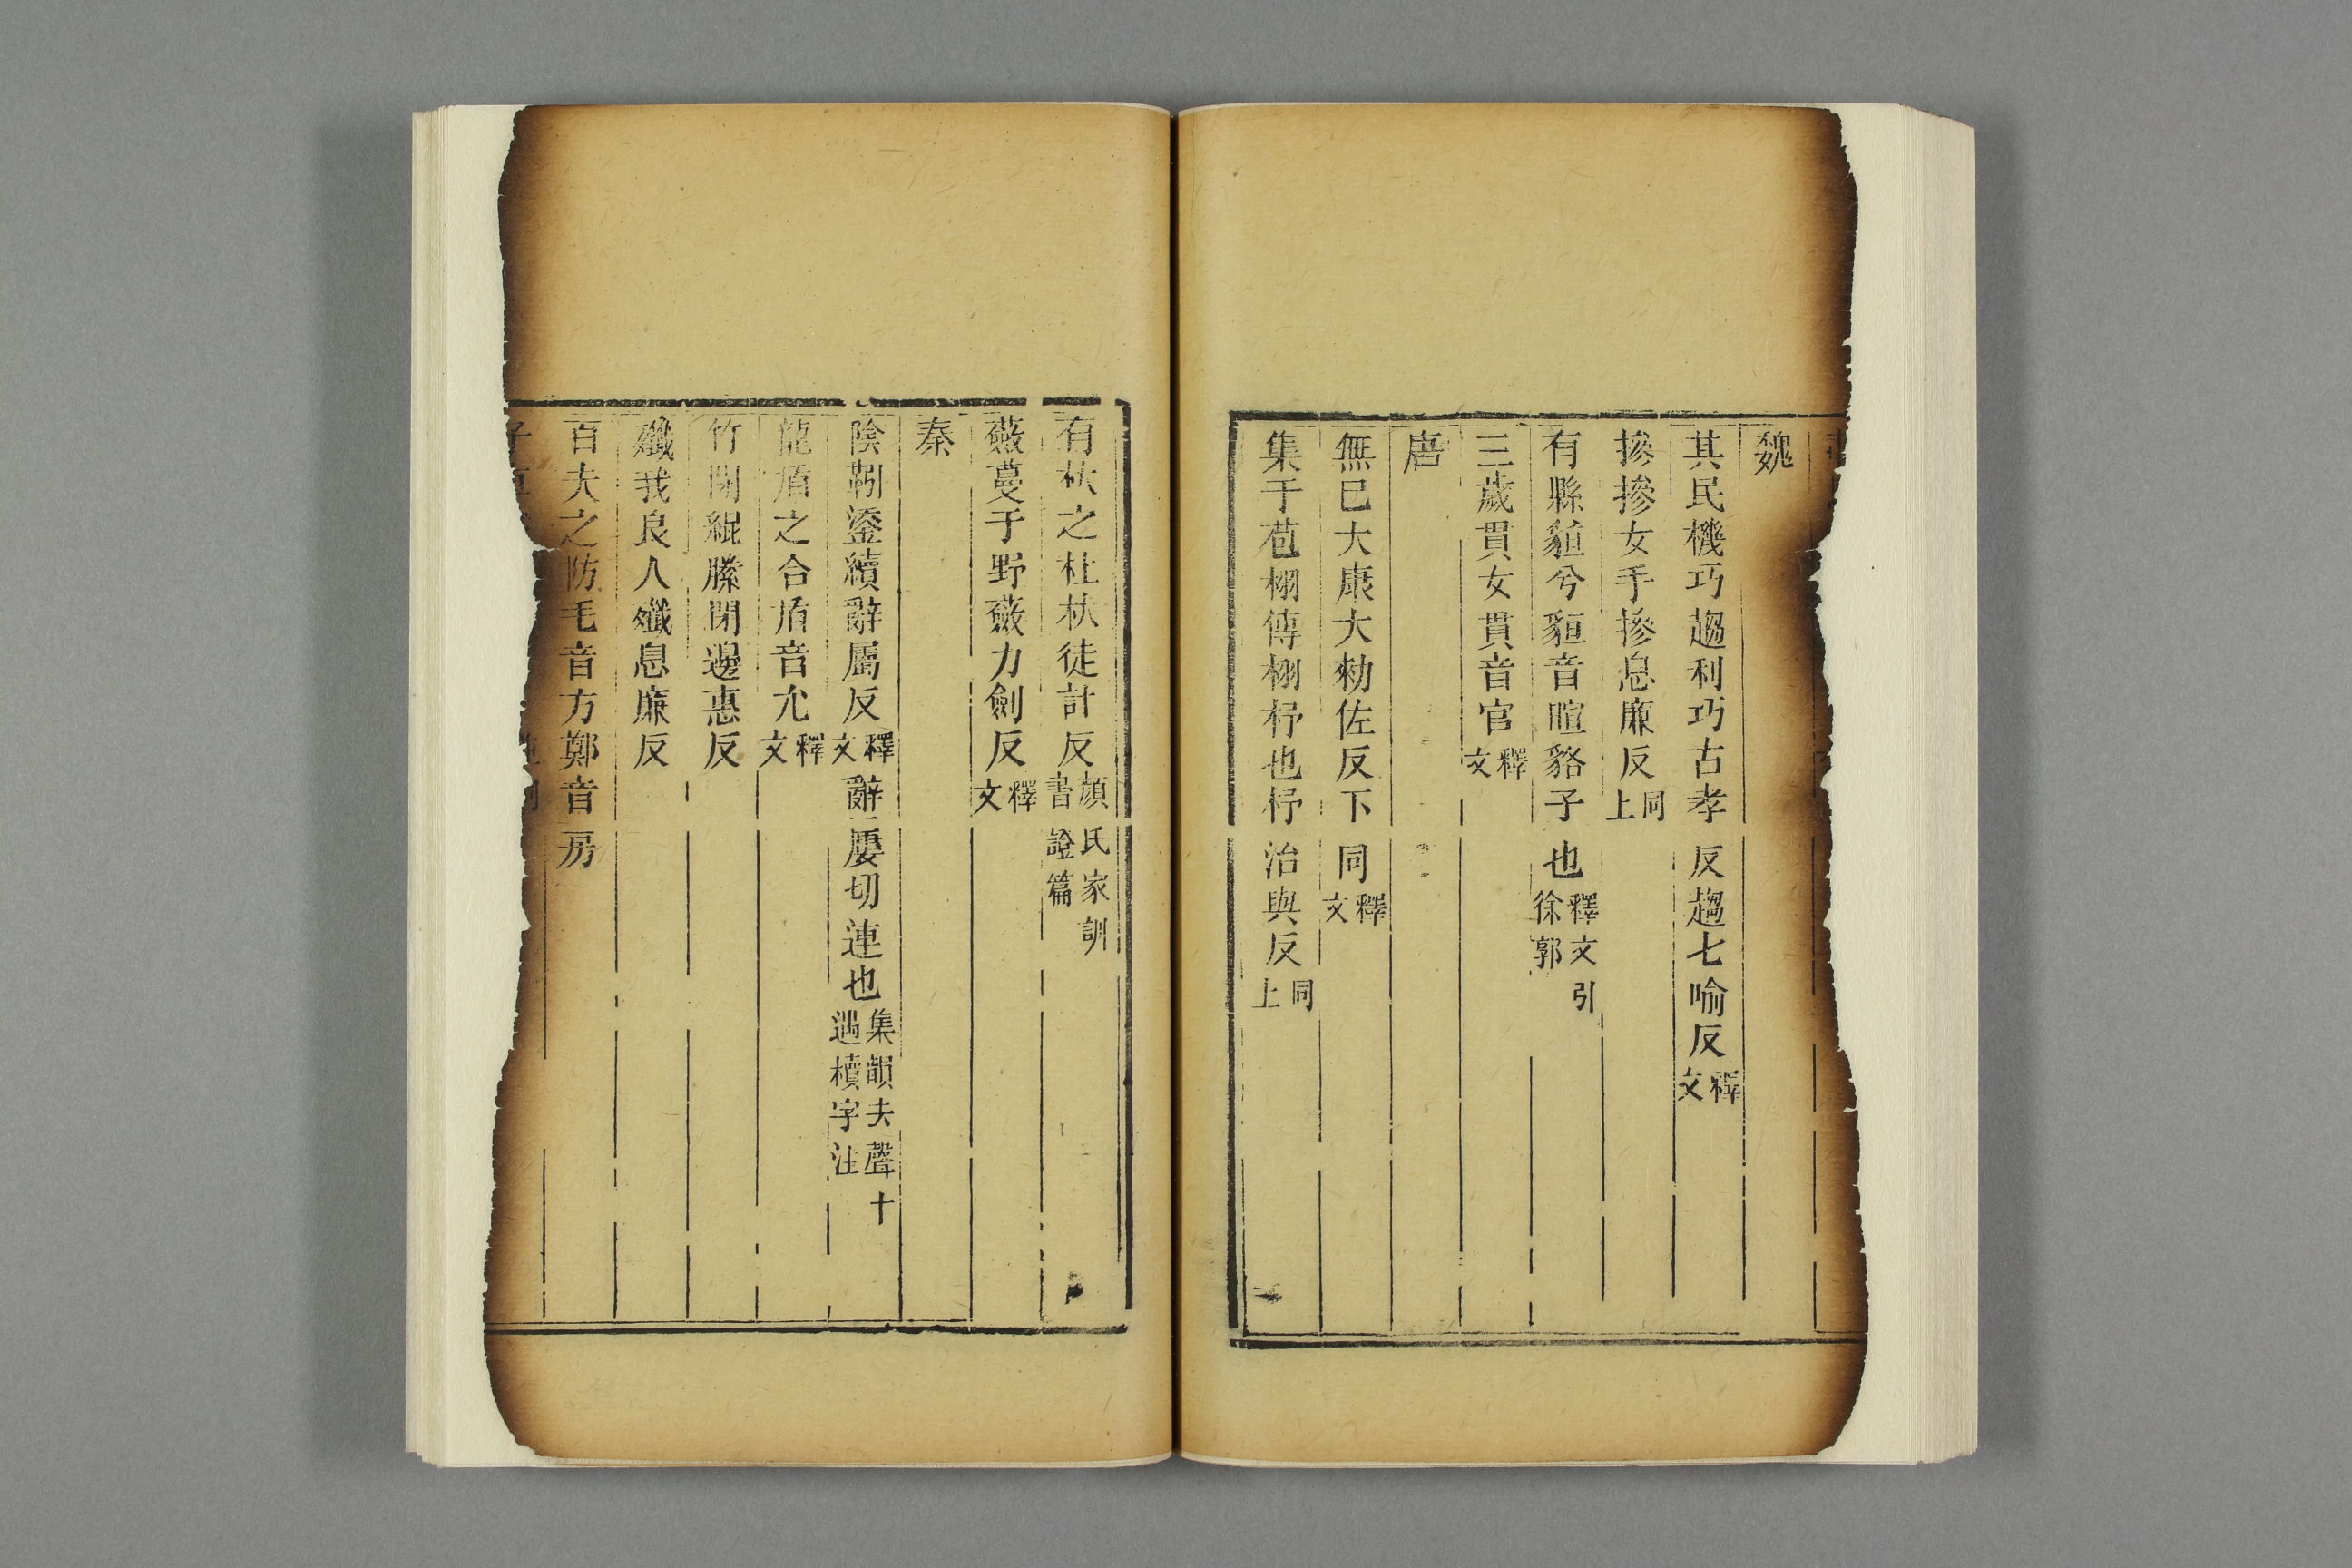 魏
其民機巧趨利巧古孝反趨七喻反釋文
摻摻女手摻息廉反同上
有縣貆兮貆音暄貉子也釋文引徐郭
三歲貫女貫音官釋文
唐
無已大康大勑佐反下同釋文
集于苞栩傳栩杼也杼治與反同上
有杕之杜杕徒計反顏氏家訓書證篇
蘞蔓于野蘞力劍反釋文
秦
陰靷鋈續辭屬反釋文辭屢切連也集韻去聲十遇櫝字注
龍盾之合盾音允釋文
竹閉緄縢閉邊惠反
殲我良人殲息廉反
百夫之防毛音方鄭音房
子